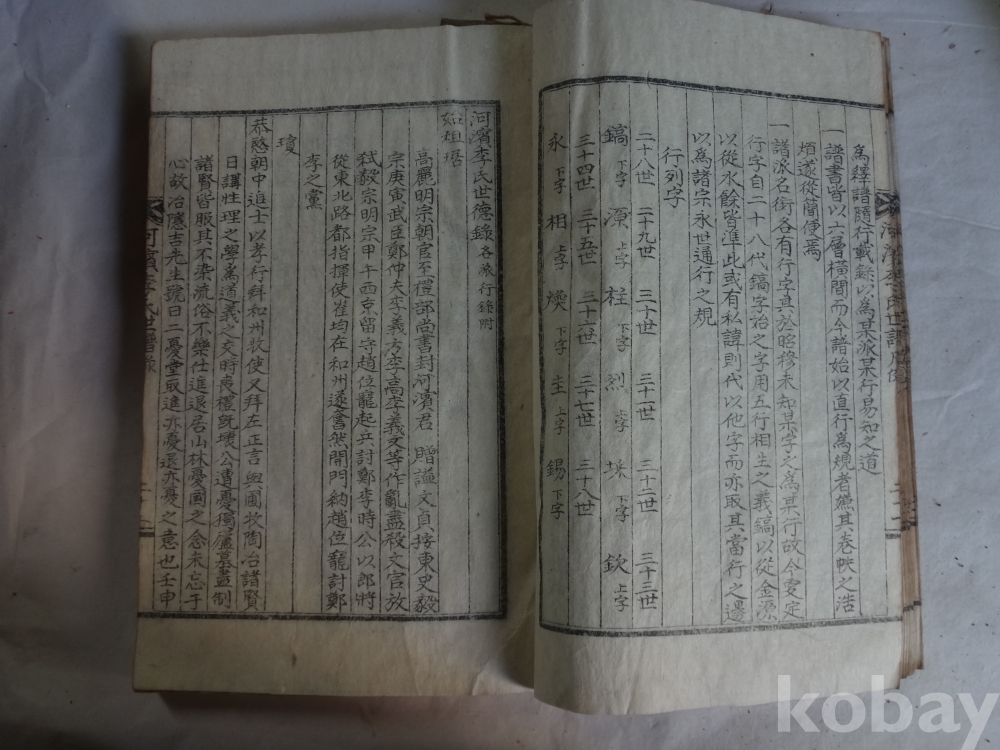 爲釋譜隨行載錄以爲某派某行易知之道
一譜書皆以六層橫間而今譜始以直行爲規者嫌其卷帙之浩
煩遂從簡便焉
一譜派名銜各有行字其於昭穆未知某字之爲某行故今更定
行字自二十八代鎬字治之字用五行相生之義鎬以從金源
以從水餘皆準此或有私諱則代以他字而亦取其當行之邊
以爲諸宗永世通行之規
行列字
二十八世 二十九世 三十世 三十一世 三十二世 三十三世
鎬 下字 源 上字 柱 下字 烈 上字 埰 下字 欽 上字
三十四世 三十五世 三十六世 三十七世 三十八世
永 下字 相 上字 煥 下字 圭 上字 錫 下字
河濱李氏世譜
河濱李氏世德錄 各派行錄附
始祖琚
高麗明宗朝官至禮部尚書封河濱君 贈謚文貞按東史毅
宗庚寅武臣鄭仲夫李義方李高李義旼等作亂盡殺文官放
弑毅宗明宗甲午西京留守趙位寵起兵討鄭李時公以郎將
從東北路都指揮使崔均在和州遂奮然開門納趙位寵討鄭
李之黨
瓊
恭愍朝中進士以孝行拜和州牧使又拜左正言與圃牧陶冶諸賢
日講性理之學爲道義之交時喪禮旣壞公遭憂獨廬墓盡制
諸賢皆服其不染流俗不樂仕進退居山林憂國之念未忘于
心故冶隱吉先生號曰二憂堂取進亦憂退亦憂之意也壬申
河濱李氏世譜